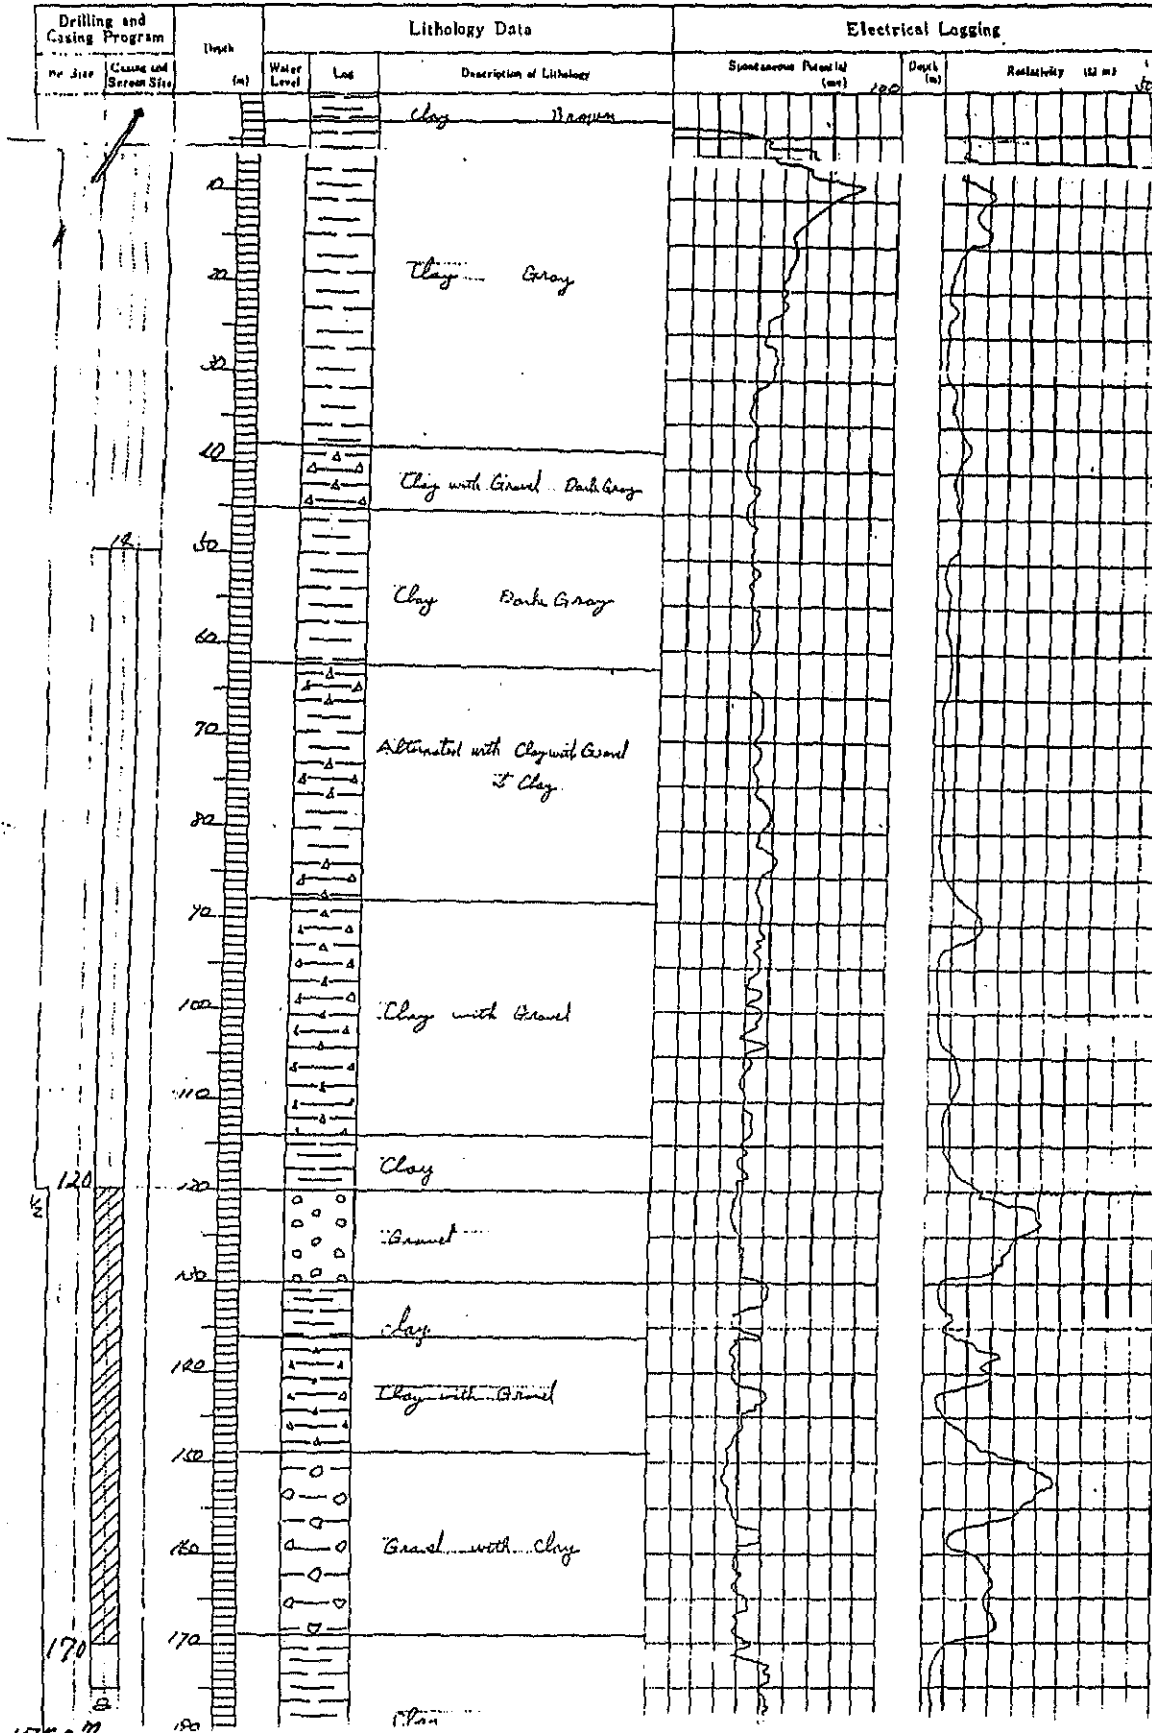 Drilling and Casing Program
Depth (m)
Lithology Data
Electrical Logging
Casing and Screen Size
Water Level
Log
Description of Lithology
Spontaneous Potential (mv)
100
Depth (m)
Resistivity (Ω m)
50
Clay Brown
10
Clay Gray
20
30
40
Clay with Gravel Dark Gray
12
50
Clay Dark Gray
60
70
Alternated with Clay with Gravel
& Clay
80
90
100
Clay with Gravel
110
Clay
120
120
Gravel
130
Clay
140
Clay with Gravel
150
Gravel with Clay
160
170
170
8
180